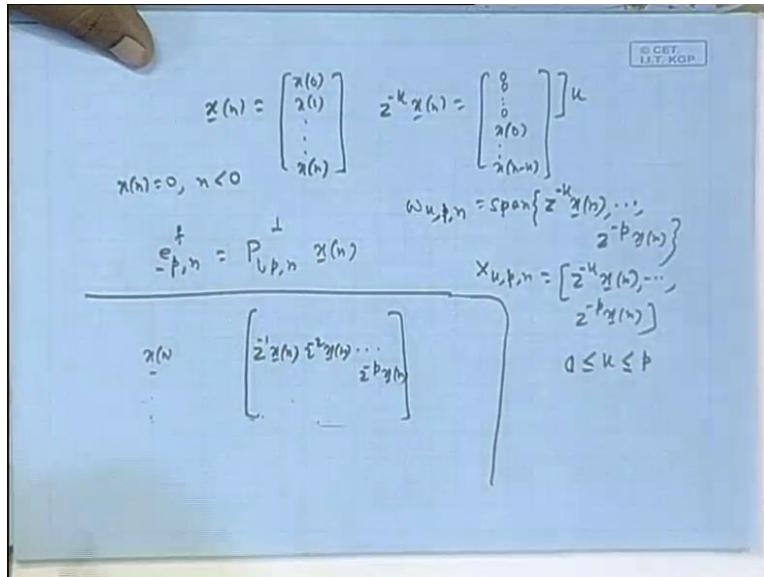 © CET
I.I.T. KGP
x(n) = [x(0) x(1) . . . x(n)]
z^-k x(n) = [0 0 ⋮ 0 x(0) ⋮ x(n-k)] ] k
x(n)=0, n<0
W k,p,n = span{z^-k x(n), ...,
z^-p x(n)}
e^f p,n = P^⊥ 1,p,n x(n)
X k,p,n = [z^-k x(n), ...,
z^-p x(n)]
0 ≤ k ≤ p
x(n
[z^-1 x(n) z^-2 x(n) ...
z^-p x(n]